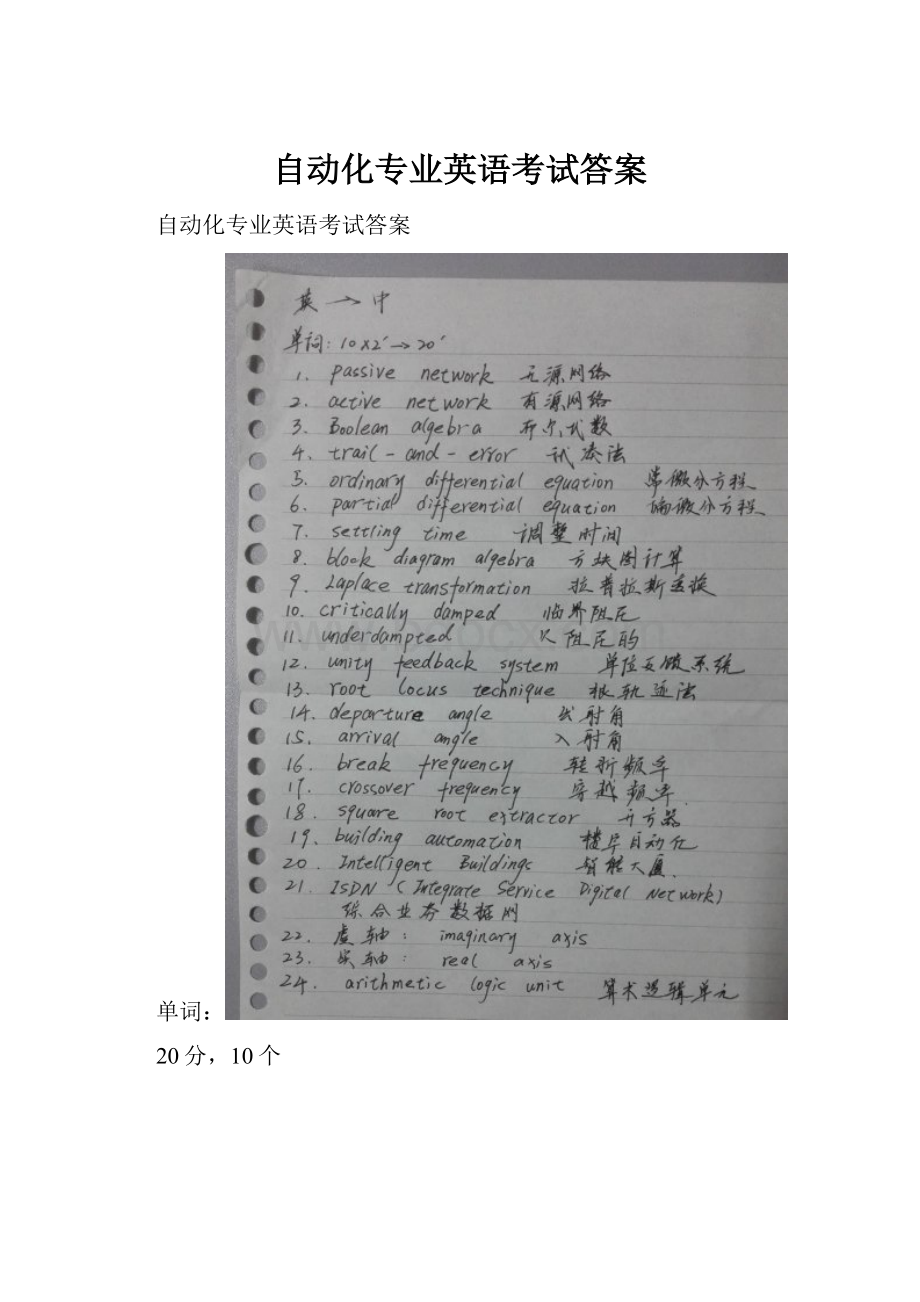 自动化专业英语考试答案
自动化专业英语考试答案
英→中
单词:10×2'→20'
1. passive network 无源网络
2. active network 有源网络
3. Boolean algebra 布尔代数
4. trail-and-error 试凑法
5. ordinary differential equation 常微分方程
6. partial differential equation 偏微分方程
7. settling time 调整时间
8. block diagram algebra 方块图计算
9. Laplace transformation 拉普拉斯变换
10. critically damped 临界阻尼
11. underdampted 欠阻尼的
12. unity feedback system 单位反馈系统
13. root locus technique 根轨迹法
14. departure angle 出射角
15. arrival angle 入射角
16. break frequency 转折频率
17. crossover frequency 穿越频率
18. square root extractor 开方器
19. building automation 楼宇自动化
20. Intelligent Buildings 智能大厦.
21. ISDN (Integrate Service Digital Network)
综合业务数据网
22. 虚轴: imaginary axis
23. 实轴: real axis
24. arithmetic logic unit 算术逻辑单元
单词:
20分,10个